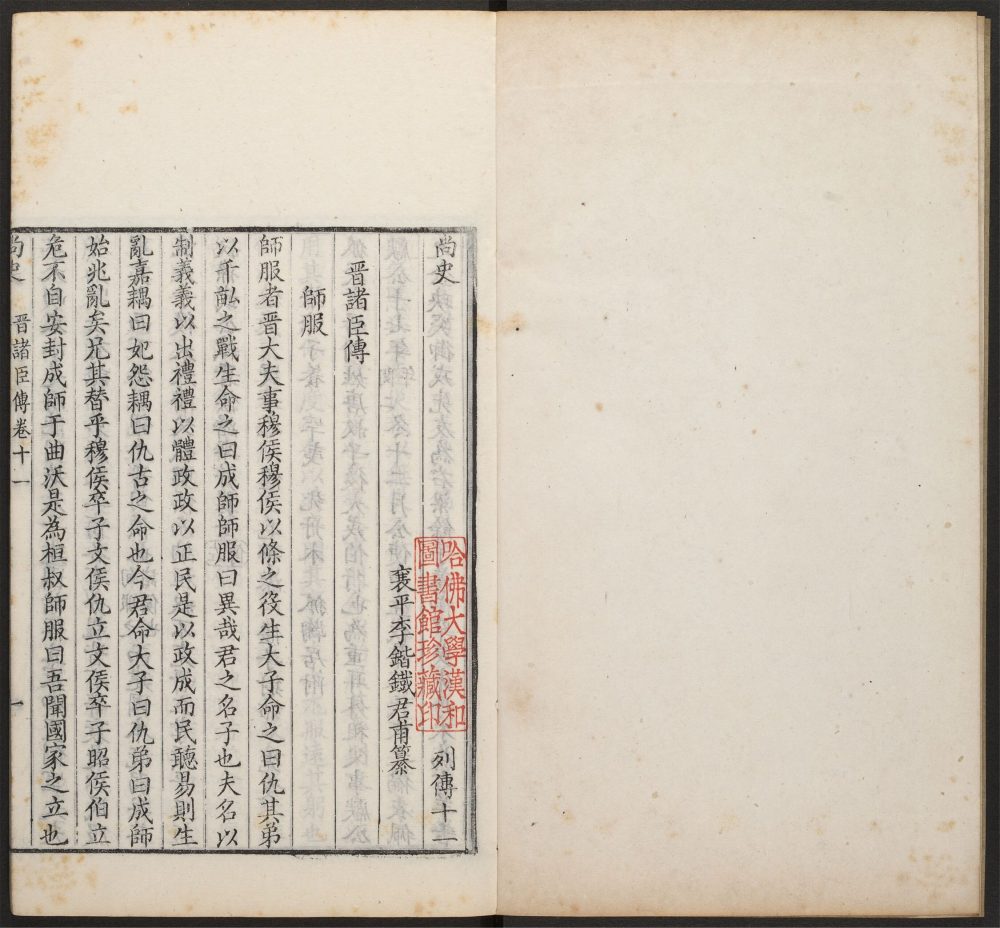 尚史 列傳十一
襄平李鍇鐵君甫纂
晉諸臣傳
師服
師服者晉大夫事穆侯穆侯以條之役生大子命之曰仇其弟
以千畝之戰生命之曰成師師服曰異哉君之名子也夫名以
制義義以出禮禮以體政政以正民是以政成而民聽易則生
亂嘉耦曰妃怨耦曰仇古之命也今君命大子曰仇弟曰成師
始兆亂矣兄其替乎穆侯卒子文侯仇立文侯卒子昭侯伯立
危不自安封成師于曲沃是為桓叔師服曰吾聞國家之立也
尚史 晉諸臣傳卷十一 一
哈佛大學漢和
圖書館珍藏印